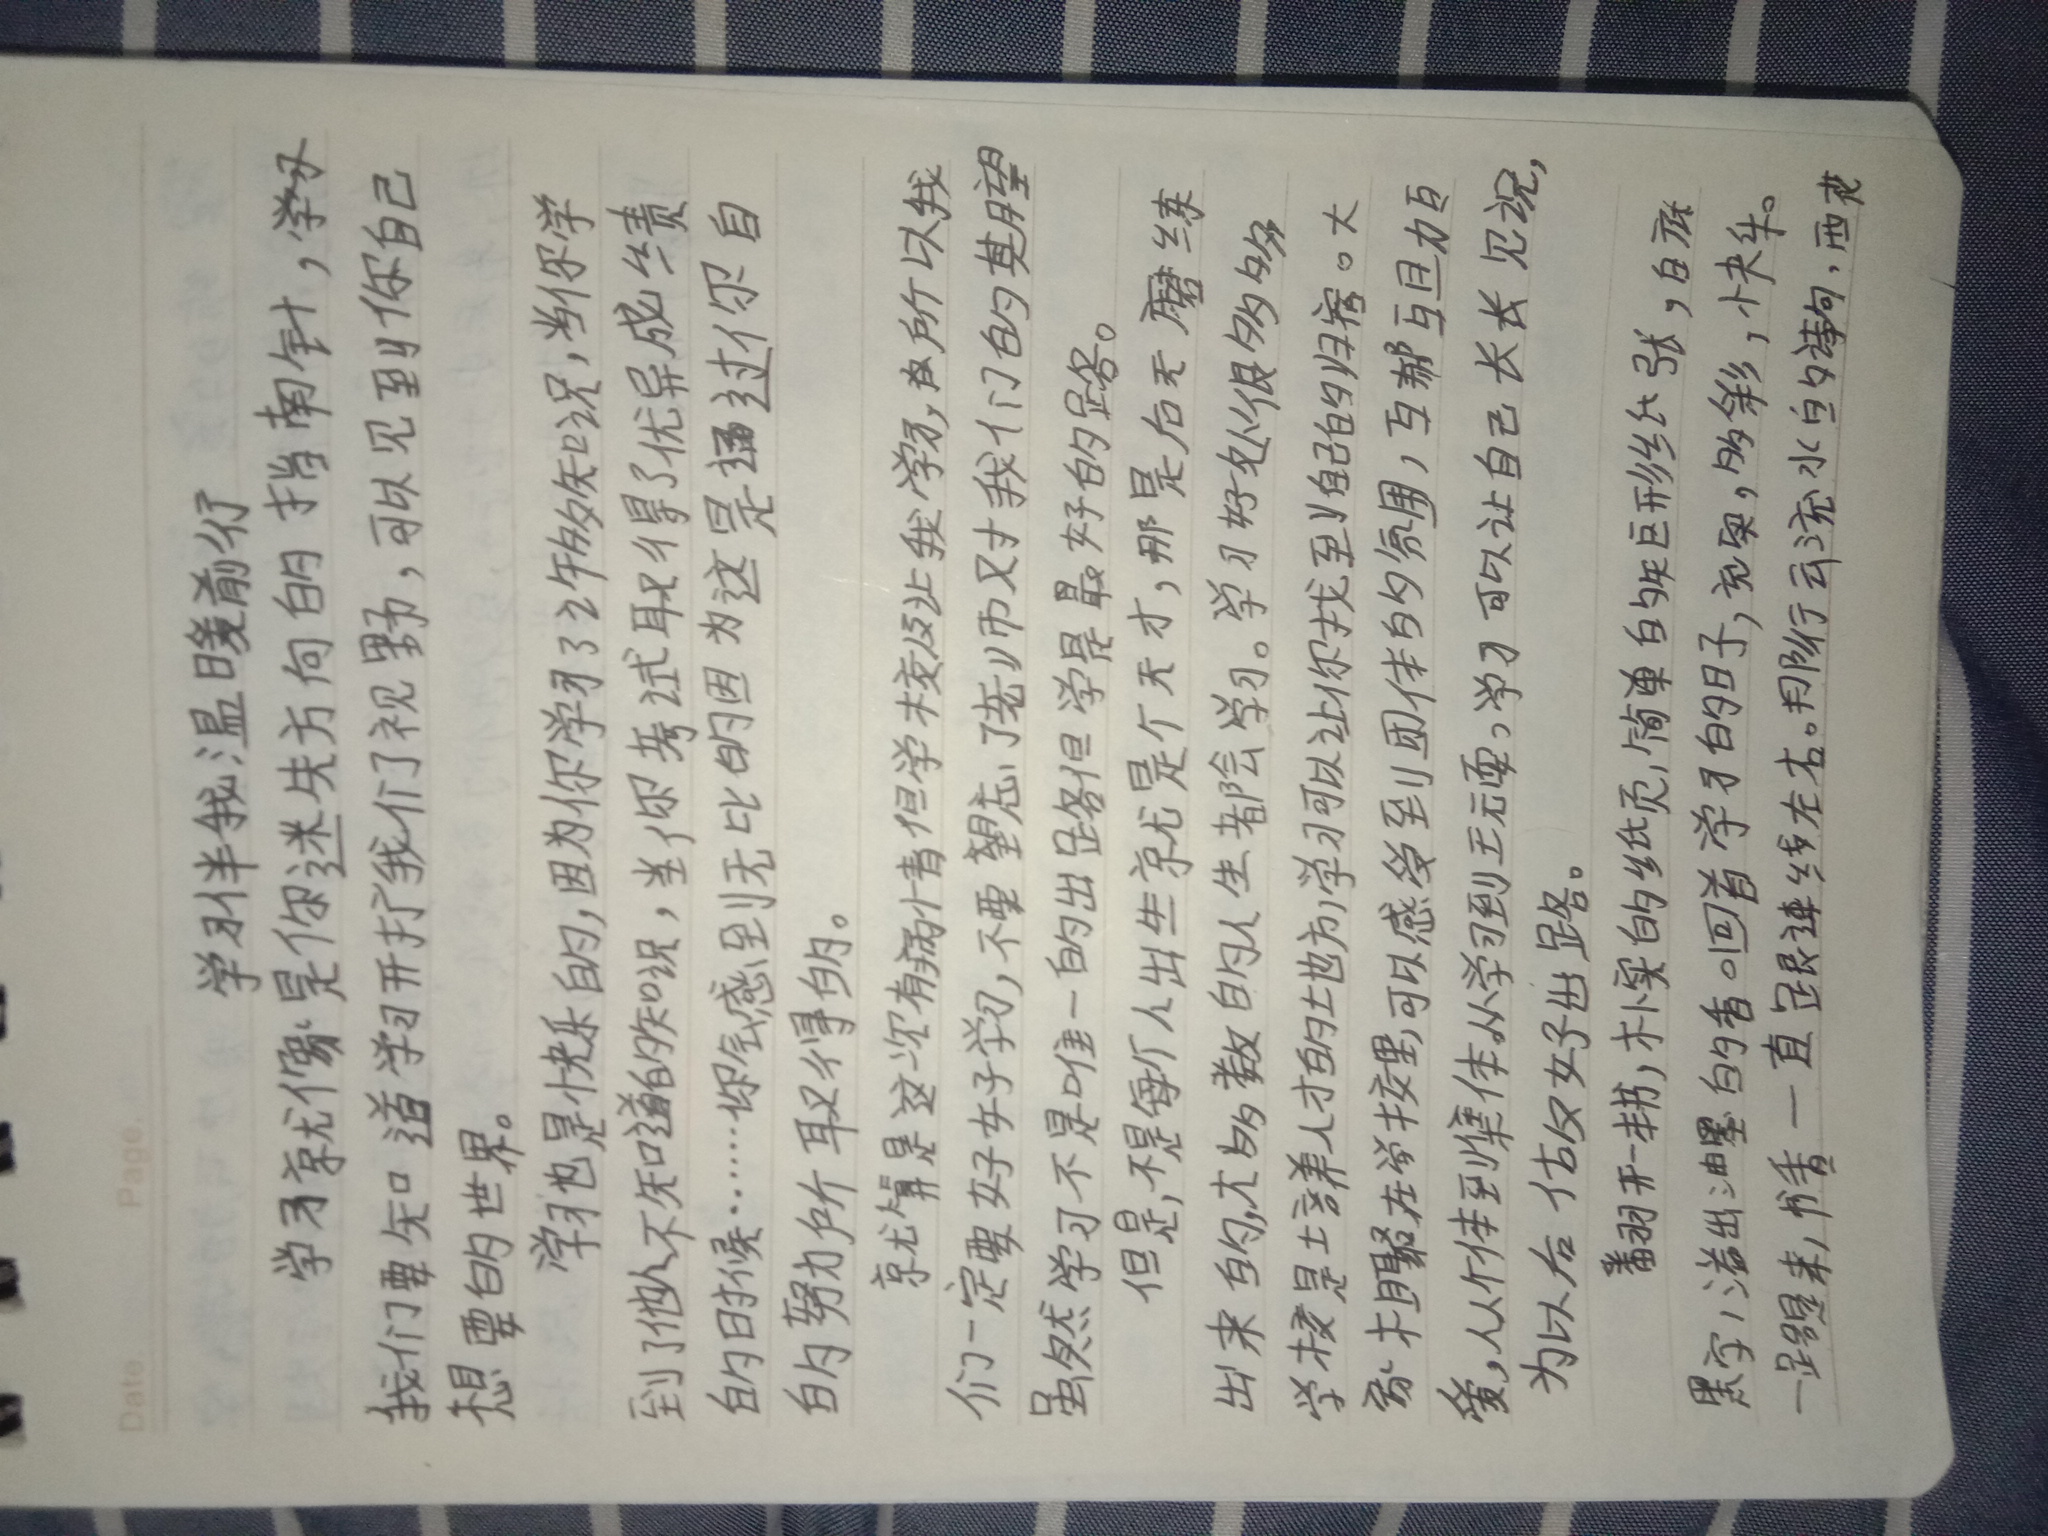 Date. Page.
学习伴我温暖前行
学习就像是你迷失方向的指南针，学习
我们要知道学习开扩了我们了视野，可以见到你自己
想要的世界。
学习也是快乐的，因为你学习了许多知识，当你学
到了他人不知道的知识，当你考试取得了优异成绩
的时候……你会感到无比的因为这是通过你自
的努力所取得的。
就算是这次有病情但学校及让我学习，故所以我
们一定要好好学习，不要望忘了老师对我们的期望
虽然学习不是唯一的出路但学是最好的路。
但是，不是每个人出生就是个天才，那是后天磨练
出来的，大多数的人生都会学习。学习好处很多多
学校是培养人才的地方，学习可以让你找到自己的归宿。大
家相聚在学校里，可以感受到团体的氛围，互帮互助互
爱，从个体到集体。从学习到玩耍，学习可以让自己长长见识，
为以后估反好出路。
翻开一书，朴实的纸页，简单的矩形纸张，白底
黑字，溢出油墨的香。回首学习的日子，充实，多彩，快乐。
一路走来，书香一直跟连线左右。用那行云流水的诗句，西衣